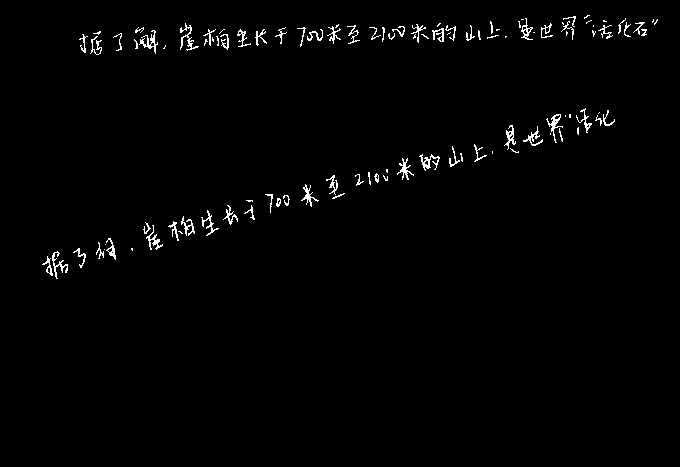 据了解，崖柏生长于700米至2100米的山上，是世界“活化石”
据了解，崖柏生长于700米至2100米的山上，是世界“活化